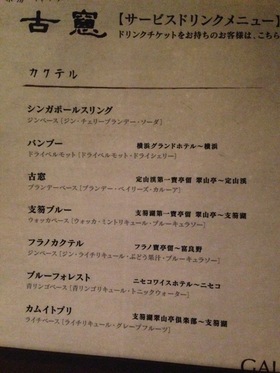 古窓
【サービスドリンクメニュー】
ドリンクチケットをお持ちのお客様は、こちら
カクテル
シンガポールスリング
ジンベース [ジン・チェリーブランデー・ソーダ]
バンブー 横浜グランドホテル〜横浜
ドライベルモット [ドライベルモット・ドライシェリー]
古窓 定山渓第一寶亭留 翠山亭〜定山渓
ブランデーベース [ブランデー・ベイリーズ・カルーア]
支笏ブルー 支笏湖第一寶亭留 翠山亭〜支笏湖
ウォッカベース [ウォッカ・ミントリキュール・ブルーキュラソー]
フラノカクテル フラノ寶亭留〜富良野
ジンベース [ジン・ライチリキュール・ぶどう果汁・ブルーキュラソー]
ブルーフォレスト ニセコワイスホテル〜ニセコ
青リンゴベース [青リンゴリキュール・トニックウォーター]
カムイトプリ 支笏湖翠山亭倶楽部〜支笏湖
ライチベース [ライチリキュール・グレープフルーツ]
GAL